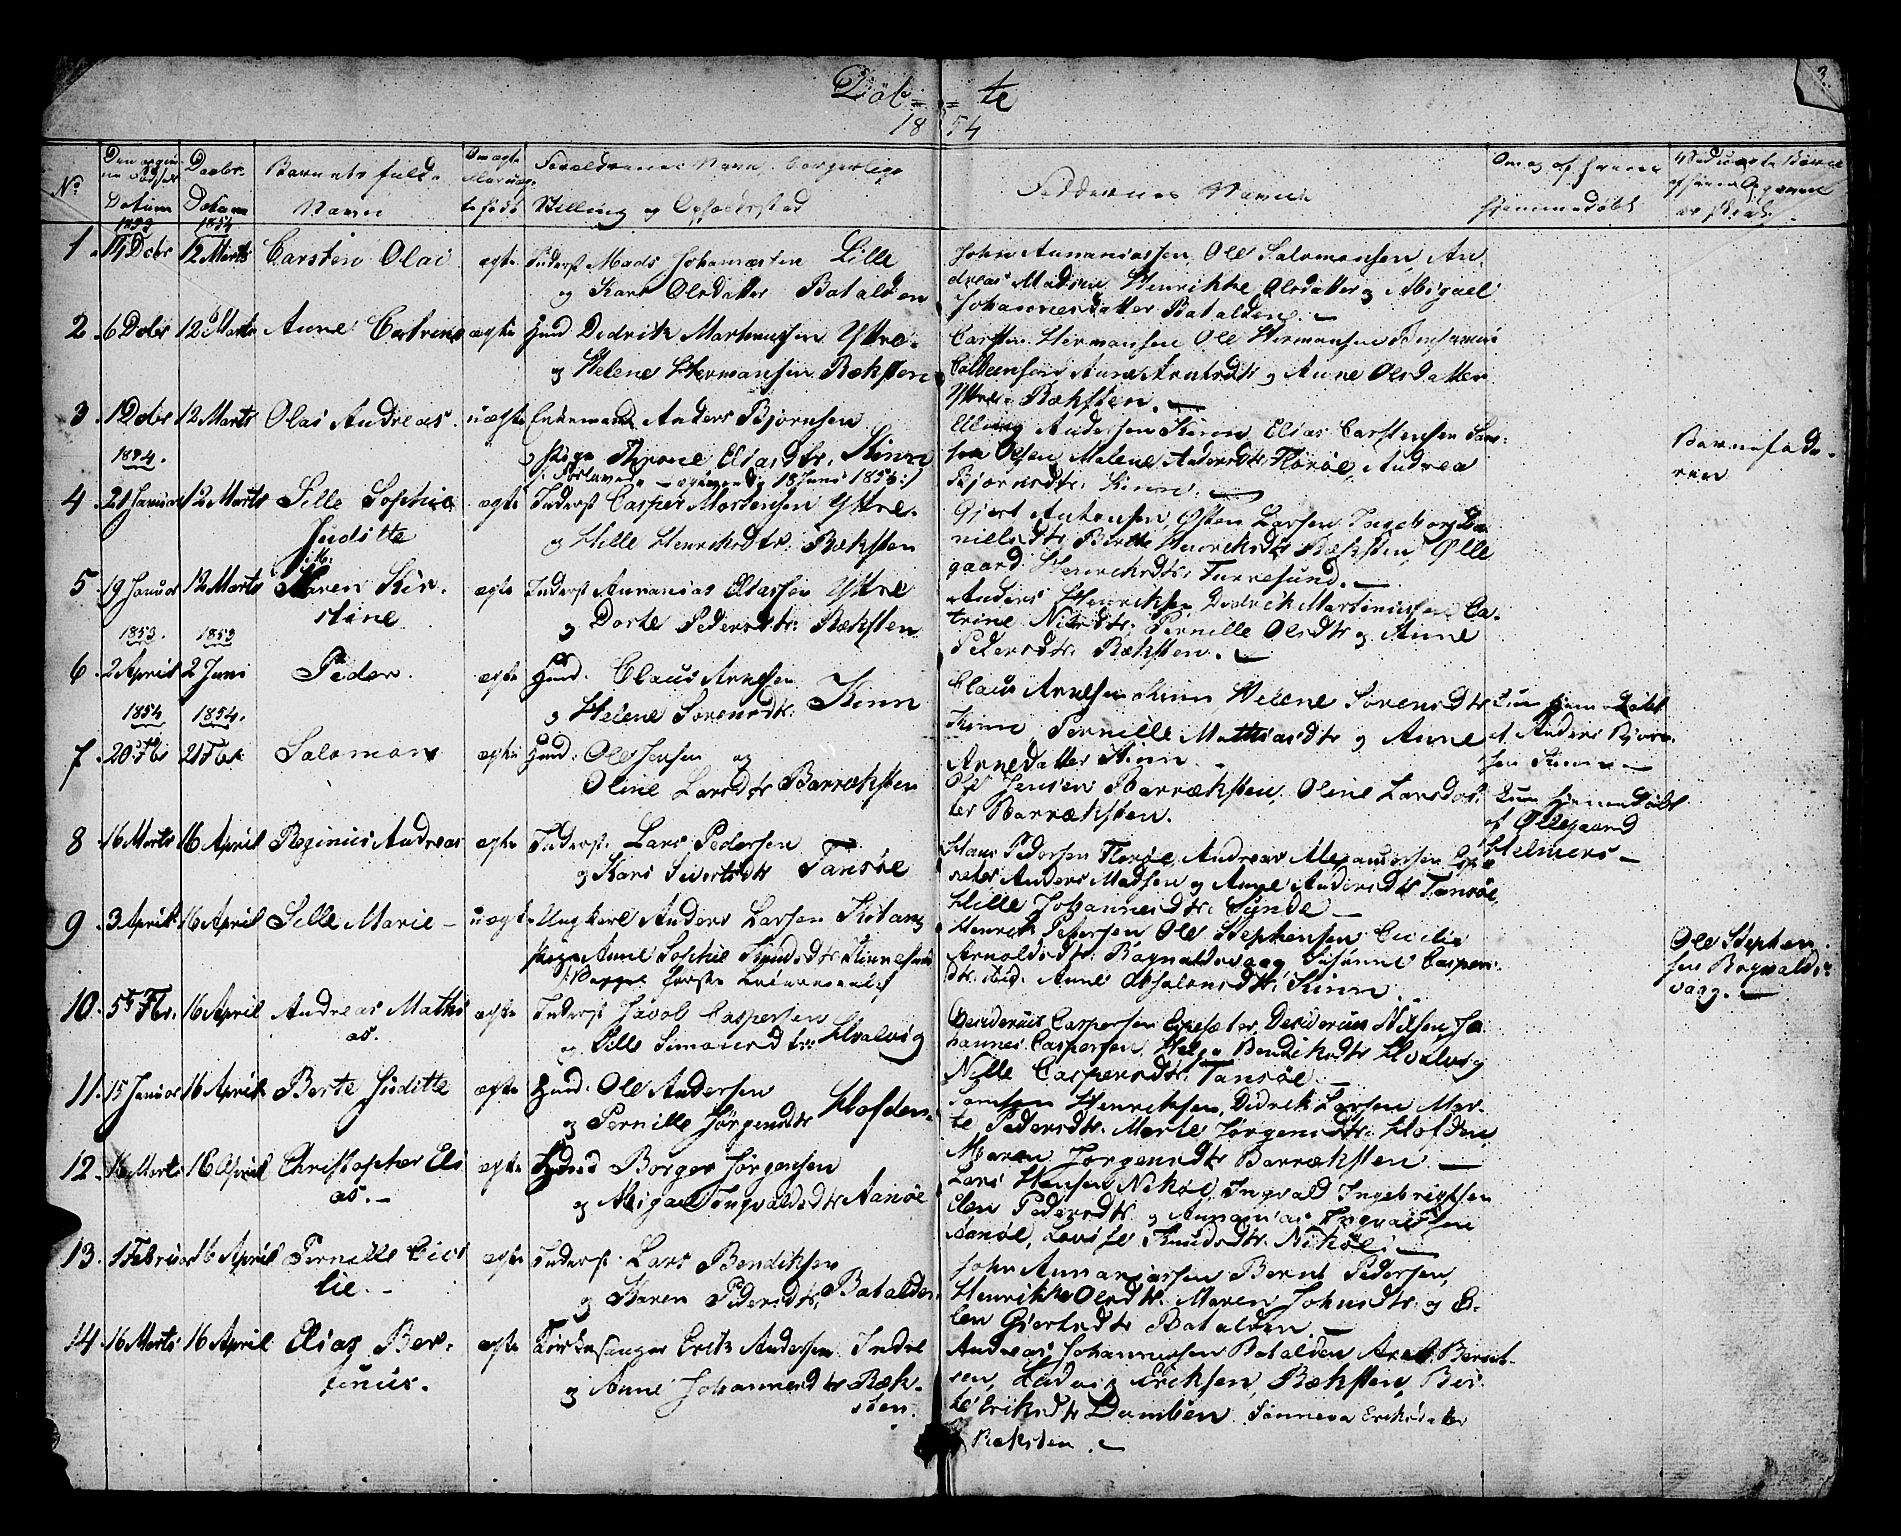 Døb= =te
1854
3
No
Barnets fulde
Navn
Forældrenes Navn, borgerlige
Stilling og Opholdssted
Faddernes Navne
Datum
Datum
hjemmedøbt
1853
1854
1. 14 Dcbr 12 Marts Carsten Olai ægte Inderst Mads Johannesen Lille
og Kari Olsdatter Batalden
John Ananiassen, Ole Salomonsen, An-
dreas Madsen, Henrikke Olsdatter og Abigael
Johannesdatter Batalden. —
2. 6 Dcbr 12 Marts Anne Catrine ægte Huusd Didrik Martinussen Yttre-
og Helene Hermansen Ræksten
Carsten Hermansen Ole Hermansen Benjamin
Anne Arntsdtr og Anne Olsdatter
Yttre Ræksten. —
3. 1 Dcbr 12 Marts Olai Andreas. uægte Enkemand Anders Bjørnsen
Pige Eliasdtr. Kinn
18 Juni 1853
Elling Andersen Steren, Elias Carstensen
Olsen Malene Andersdtr Florøe, Andrea
Bjørnsdtr: Kinn. —
Barnefade-
ren
1854.
4. 21 Januar 12 Marts Sille Sophie
Juditte
ægte Inderst Casper Mortensen Yttre-
og Hille Henriksdtr: Ræksten
Gjert Antonsen, Østen Larsen Ingeborg Da-
nielsdtr Berthe Henriksdtr Ræksten, Olle
gaard Henriksdtr Furresund. —
5. 19 Januar 12 Marts Karen Kir-
stine
ægte Inderst Ananias Eliassen Yttre
og Dorte Pedersdtr: Ræksten
Anders Henriksen Dedrik Martinussen Ca-
trine Nilsdtr, Pernille Olsdtr og Anne
Pedersdtr: Ræksten. —
1853. 1853
6. 2 April 2 Juni Peder. ægte Huusd. Claus Arnesen
og Helene Sørensdtr: Kinn
Claus Arnesen Kinn Helene Sørensdtr
Kinn Pernille Mathiasdtr og Anne
Arnedatter Kinn.
hjemmedøbt
af Anders Bjørn-
sen Kinn —
1854 1854.
7. 20 Fbr 21 Fbr Salomon ægte Huusd: Ole Jensen og
Oline Larsdtr Barræksten
Ole Jensen Barræksten, Oline Larsdat-
ter Barræksten.
hjemmedøbt
af Øllegaard
Helmers —
8 16 Marts 16 April Reginius Andreas ægte Inderst. Lars Pedersen
og Kari Sivertsdtr Tansøe
Hans Pedersen Florøe, Andreas Alexandersen
Anders Madsen og Anne Andersdtr Tansøe,
Hille Johannesdtr: Synde —
9. 3 April 16 April Sille Marie — uægte Ungkarl Anders Larsen
Pige Anne Sophie Knudsdtr Kinnesund
Begges første
Henrik Petersen Ole Stephensen Cecilie
Arnoldsdtr: Rognaldsvaag Susanne Caspers-
dtr: ibid. Anne Absalonsdtr: Kinn.
Ole Stephen-
sen Rognalds-
vaag. —
10. 5 Fbr. 16 April Andreas Mathi
as.
ægte Inderst Jacob Caspersen
og Pille Simonsdtr: Hvalvig
Desiderius Caspersen Eresæter, Desiderius Nilsen, Jo
hannes Caspersen, Helga Bendiksdtr Hvalvig
Nille Caspersdtr: Tansøe. —
11. 15 Januar 16 April Berte Juditte ægte Huusd: Ole Andersen
og Pernille Jørgensdtr Hofden.
Samson Henriksen, Didrik Larsen Mar-
te Pedersdtr: Marte Jørgensdtr: Hofden,
Maren Jørgensdtr Barræksten —
12. 16 Marts 16 April Christopher Eli
as. —
ægte Huusd Børger Jørgensen
og Abigael Ingvaldsdtr Aanøe
Lars Hansen Nekøe, Ingvald Ingebrigtsen
Elen Pedersdtr og Annanias Ingvaldsen
Aanøe, Lovise Knudsdtr: Nekøe. —
13. 1 Februar 16 April Pernille Cici
lie. —
ægte Inderst. Lars Bendiksen
og Karen Pedersdtr, Batalden.
John Annaniassen Bernt Pedersen,
Henrikke Olsdtr. Maren Johnsdtr. og E-
len Gjertsdtr Batalden. —
14. 16 Marts 16 April Elias Ber-
tinus.
ægte Kirkesanger Erik Andersen Indre
og Anne Johannesdtr Ræk-
sten.
Andreas Johannessen Batalden Arnt Bernt-
sen, Ludvig Eriksen, Ræksten, Ber-
te Eriksdtr Domben, Sønneva Eriksdatter
Ræksten. —